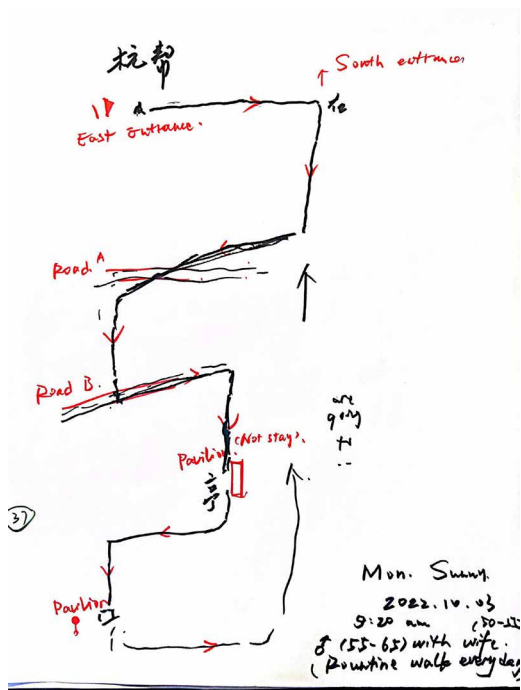 杭帮
South entrance
East Entrance.
Road A
Road B.
are
going
Pavilion (Not stay).
亭
37
Pavilion
Mon. Sunny.
2022.10.03
9:20 am
♂ (55-65) with wife.
(Rountine walk everyday